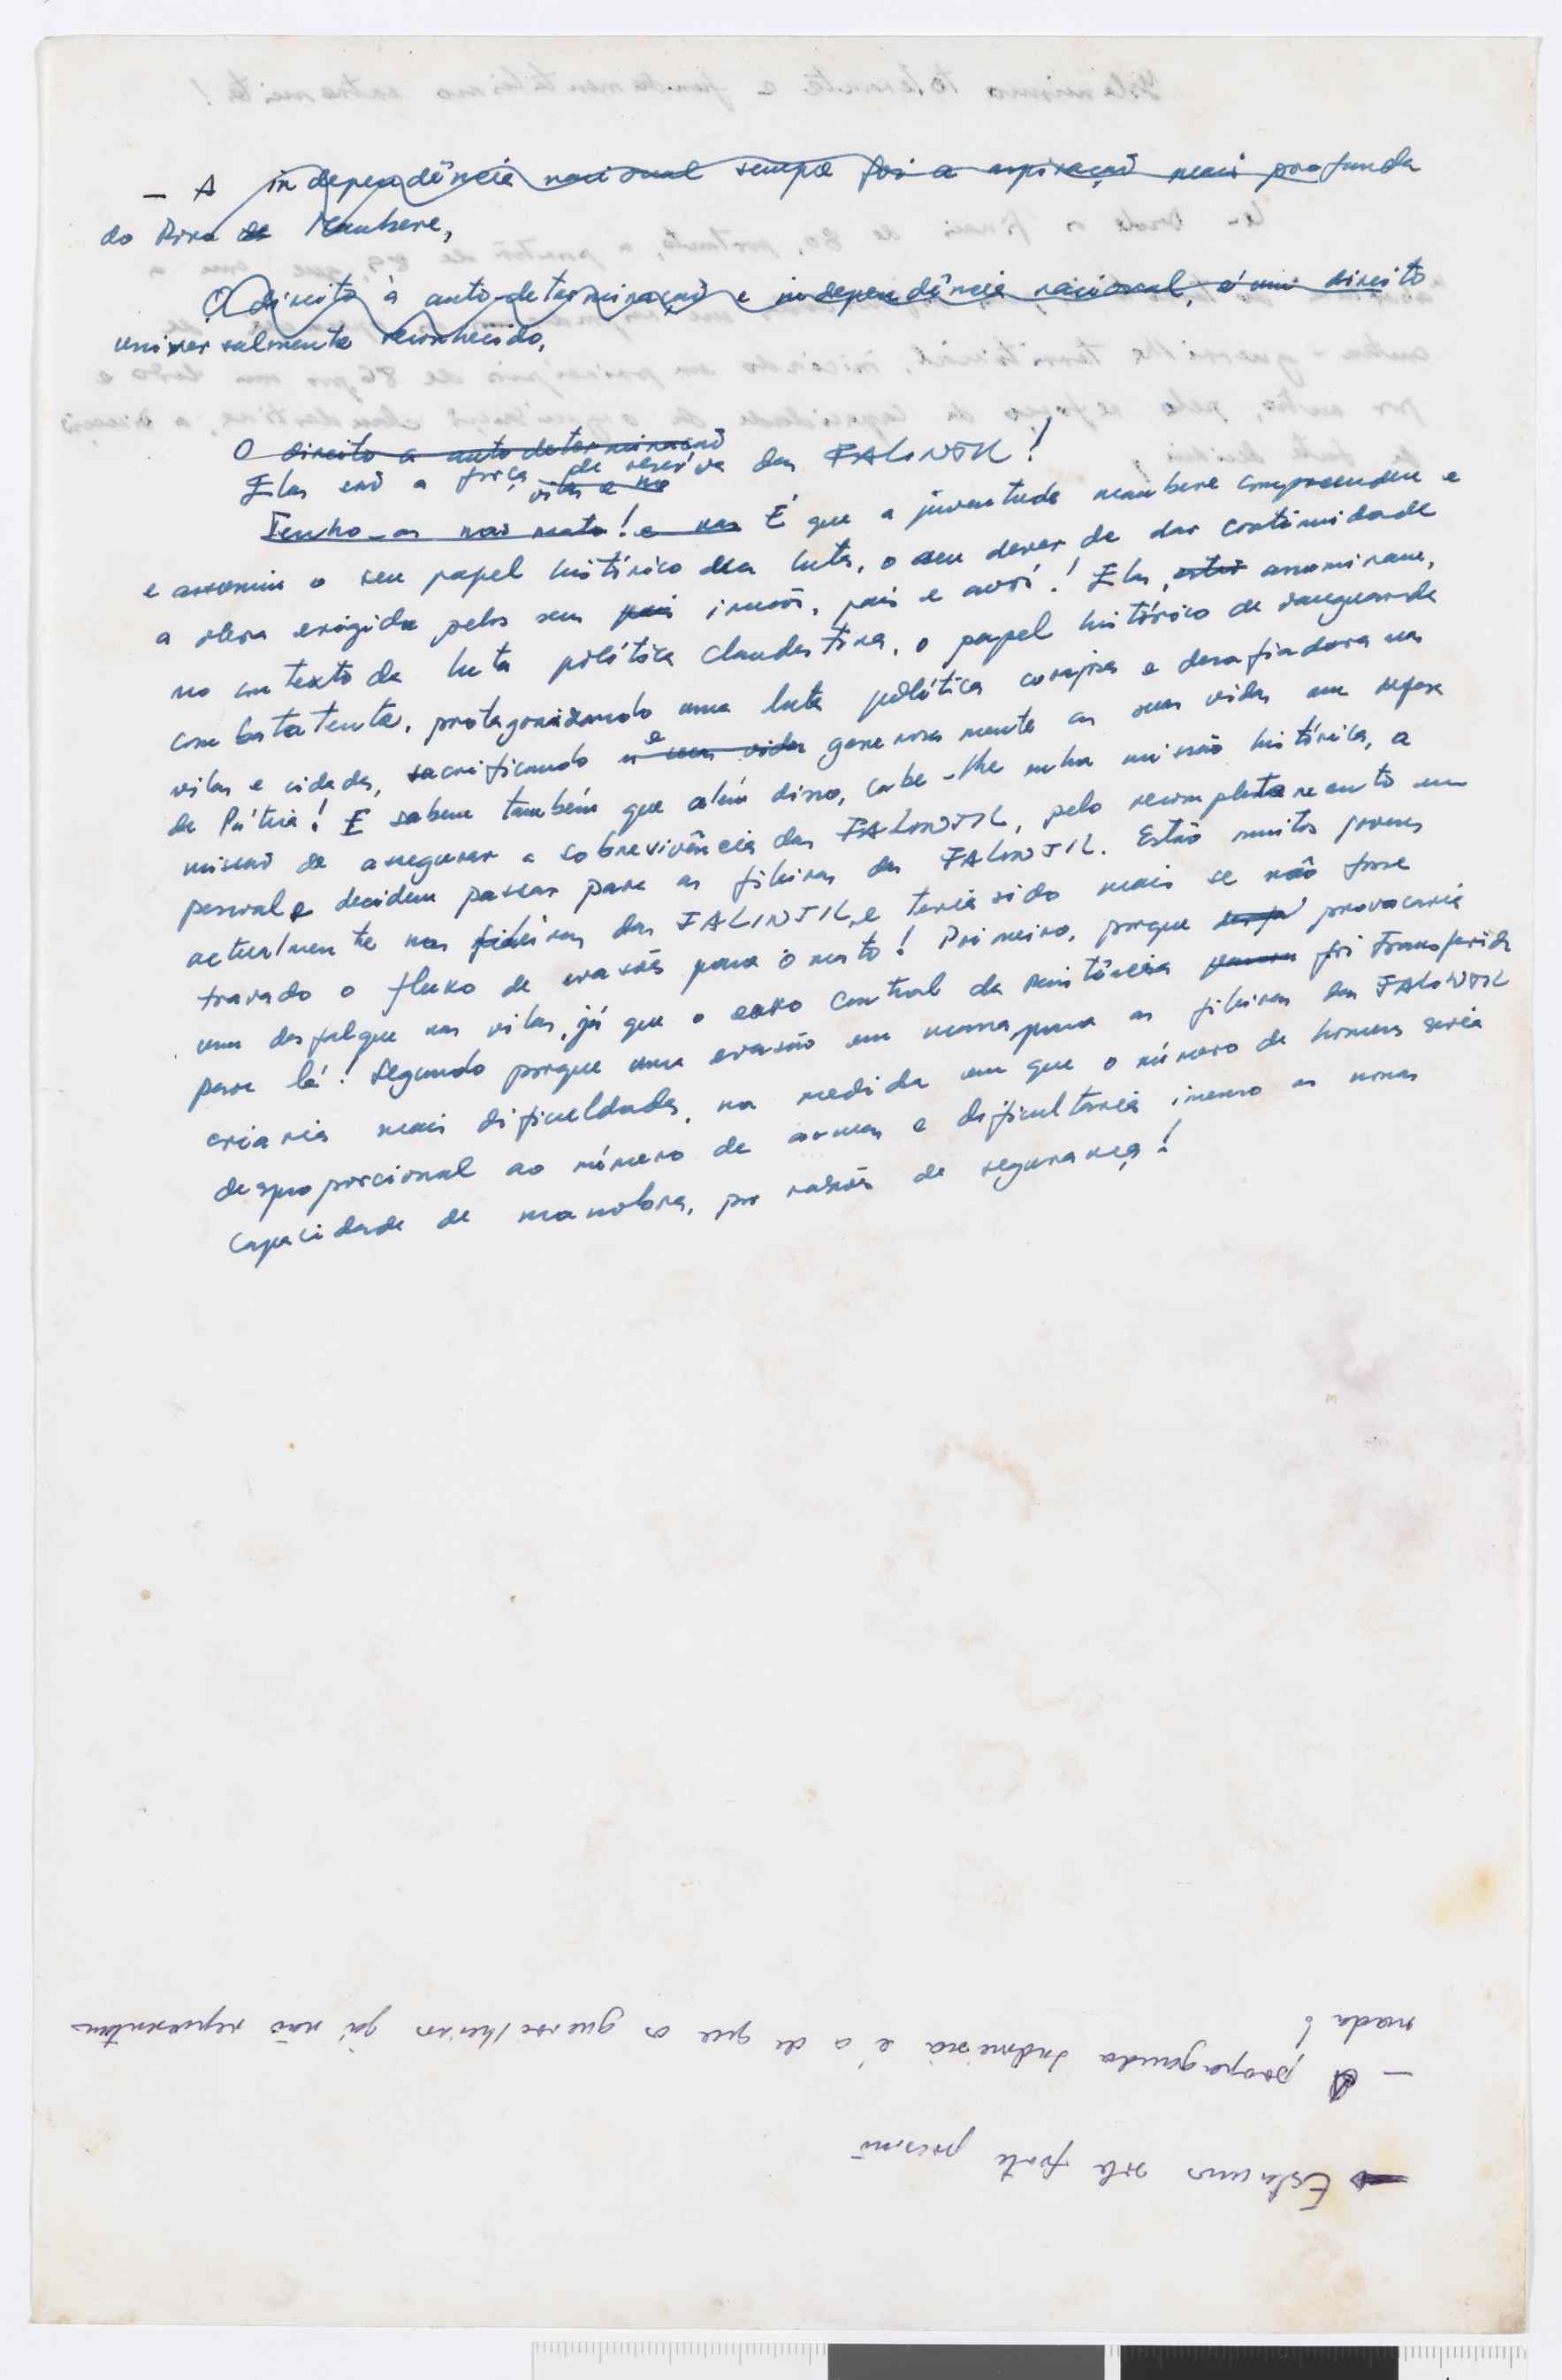 - A independência nacional sempre foi a aspiração mais profunda
do Povo de Maubere,
O direito à auto-determinação e independência nacional, é um direito
universalmente reconhecido,
O direito a autodeterminação
Elas são a força de reserva das FALINTIL!
vilas e no
Tenho-as nas mato! e nas É que a juventude maubere compreendeu e
e assumiu o seu papel histórico da luta, o seu dever de dar continuidade
a obra erigida pelos seus pais irmãos, pais e avós! Elas, estão assumiram,
no contexto da luta política clandestina, o papel histórico de vanguarda
combatente, protagonizando uma luta política corajosa e desafiadora nas
vilas e cidades, sacrificando e suas vidas generosamente as suas vidas em defesa
da Pátria! E sabem também que além disso, cabe-lhe outra missão histórica, a
missão de assegurar a sobrevivência das FALINTIL, pelo recompletamento em
pessoal e decidem passar para as fileiras das FALINTIL. Estão muitos jovens
actualmente nas fileiras das FALINTIL e teria sido mais se não fosse
travado o fluxo de evasões para o mato! Primeiro, porque provocaria
um desfalque nas vilas, já que o eixo central da resistência foi transferido
para lá! Segundo porque uma evasão em massa para as fileiras das FALINTIL
criaria mais dificuldades, na medida em que o número de homens seria
desproporcional ao número de armas e dificultaria imenso as nossas
capacidade de manobra, por razões de segurança!
- Estamos sob forte pressão
- A propaganda indonésia é a de que os guerrilheiros já não representam
nada!